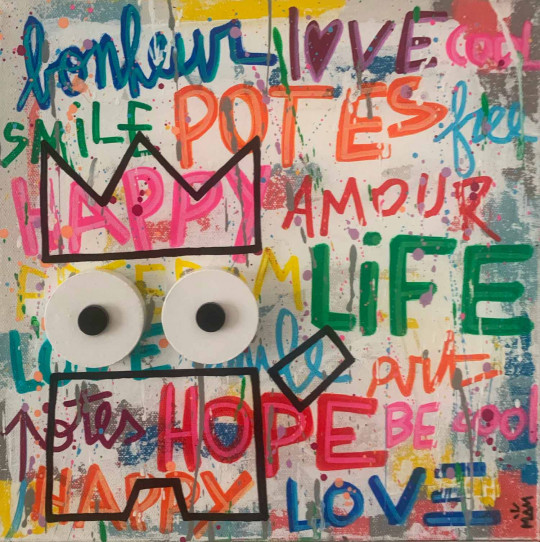 bonheur LOVE COOL
SMiLE POTES free
HAPPY AMOUR
FREEDOM LiFE
LOVE smile art
potes HOPE BE COOL
HAPPY LOVE
MAM